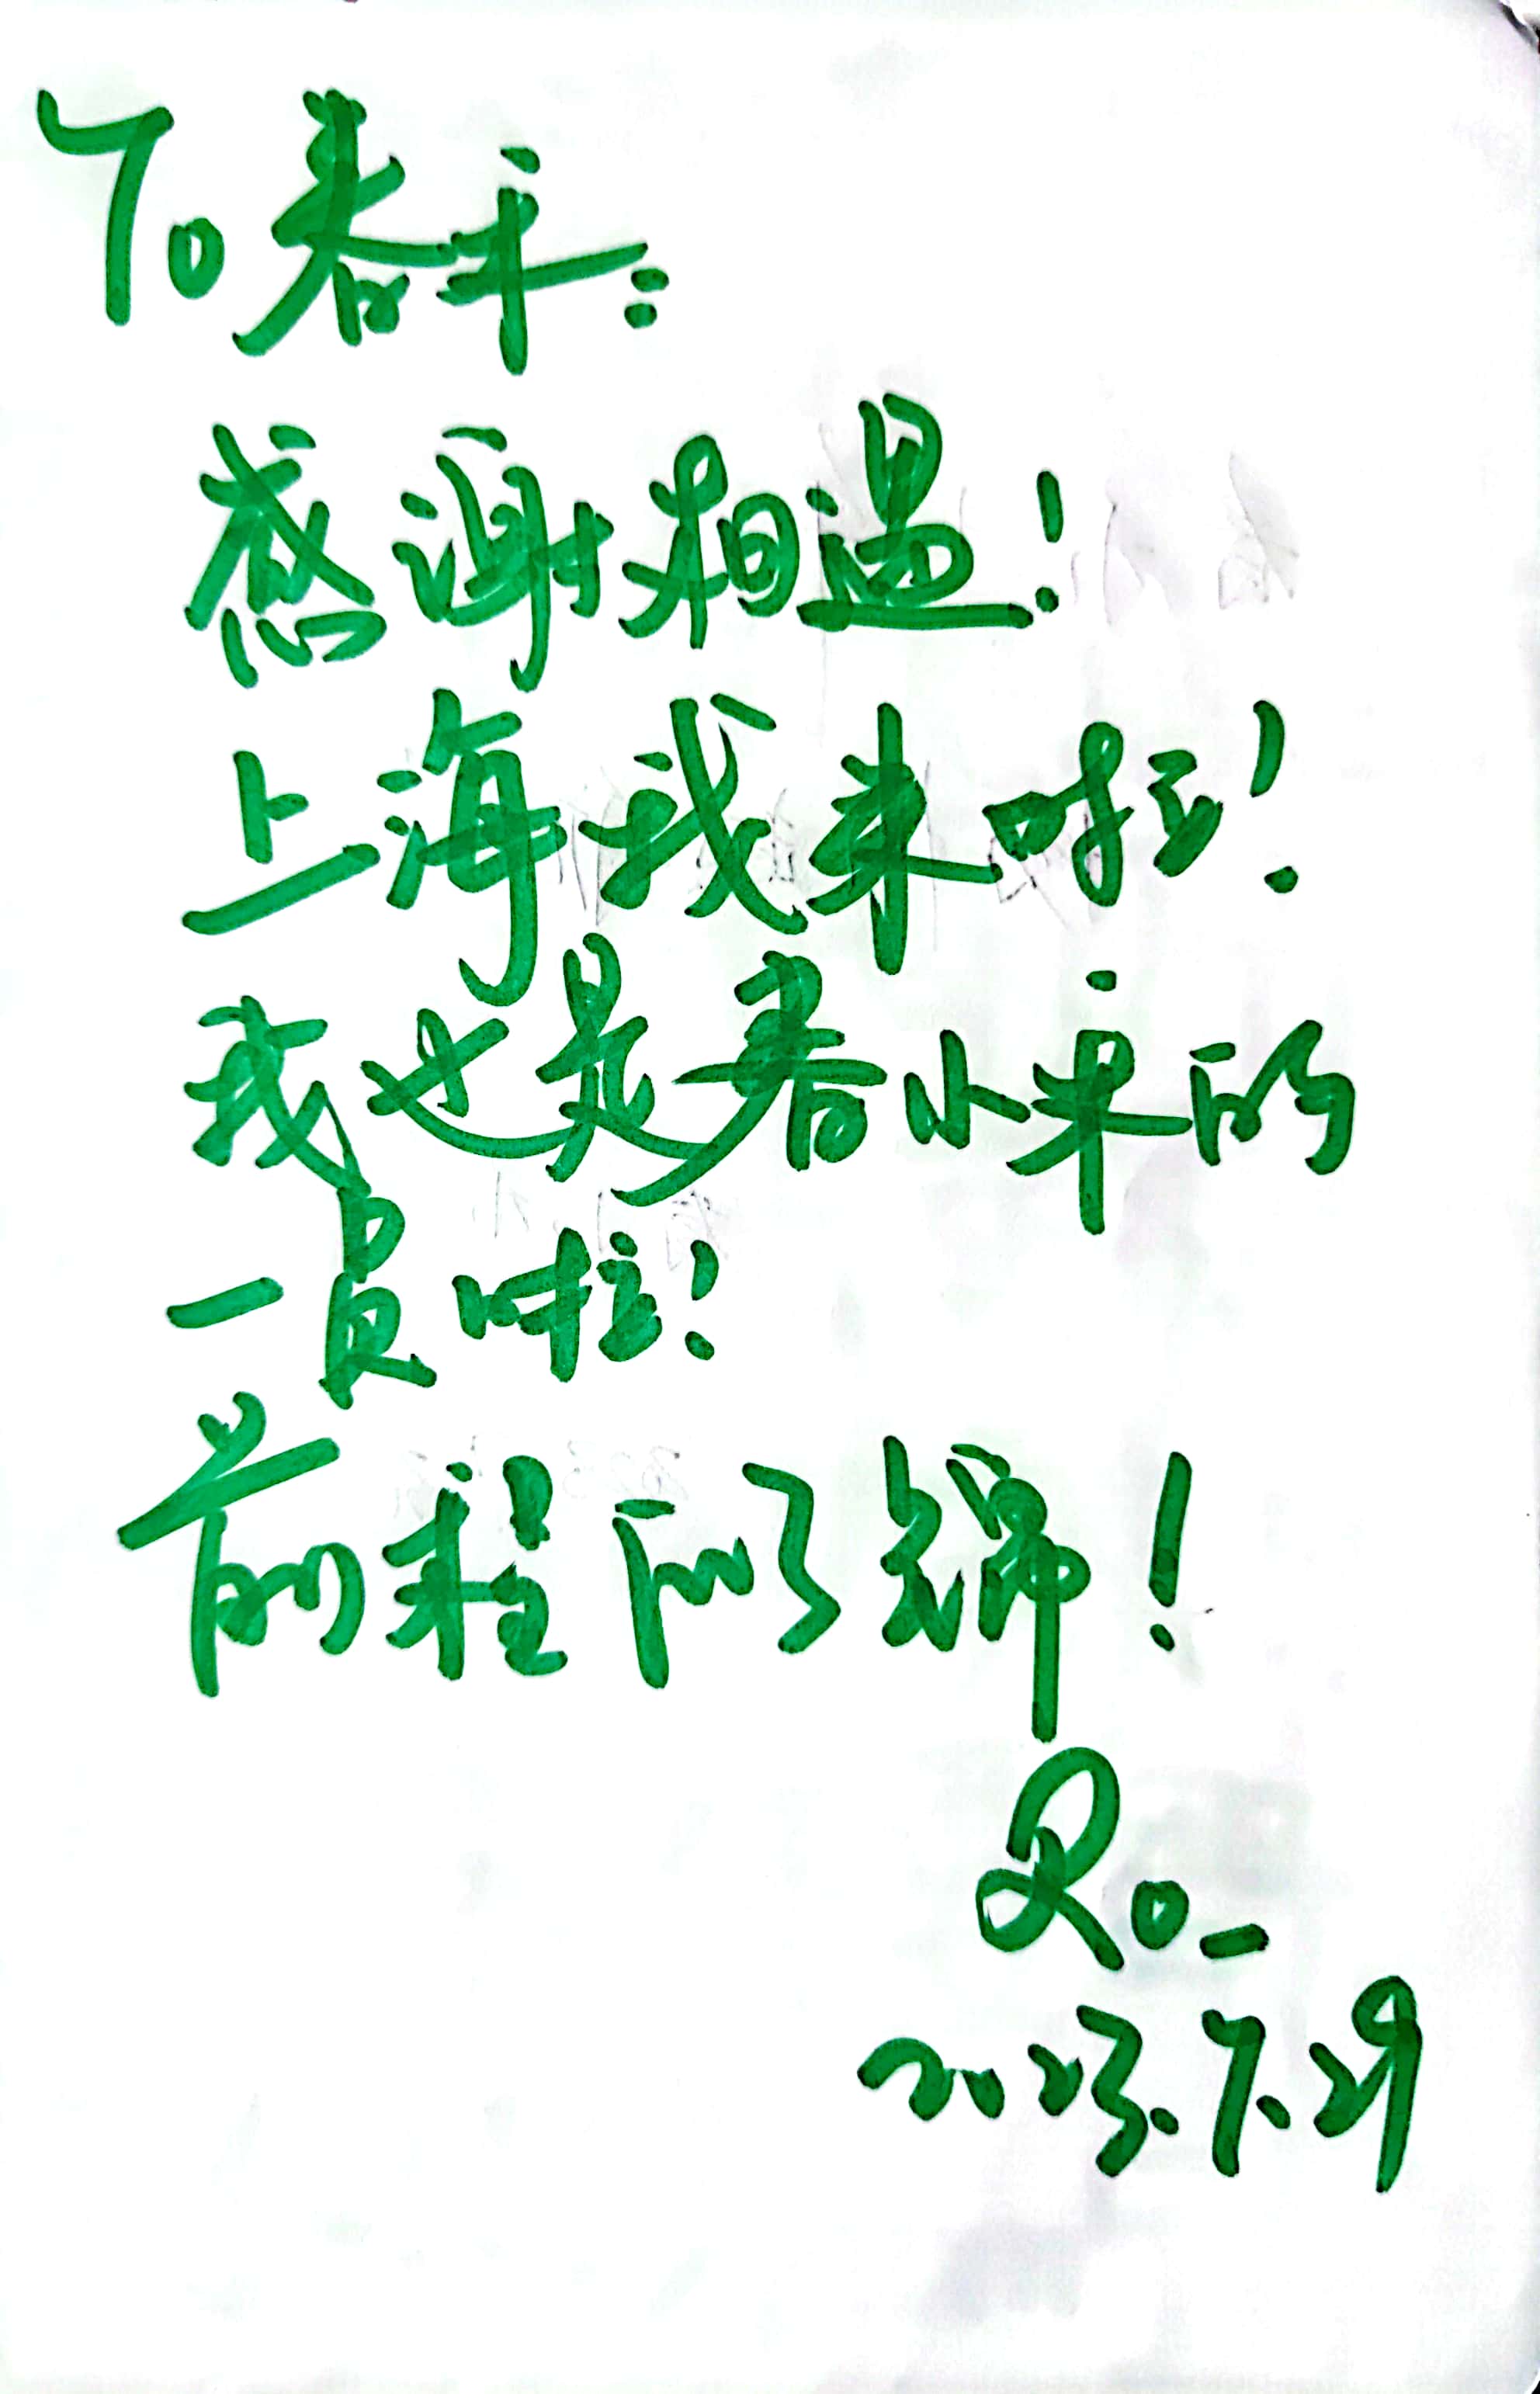 To 春平:
感谢相遇!
上海我来啦!
我也是春小平的
一员啦!
前程似锦!
Ro_
2023.7.29